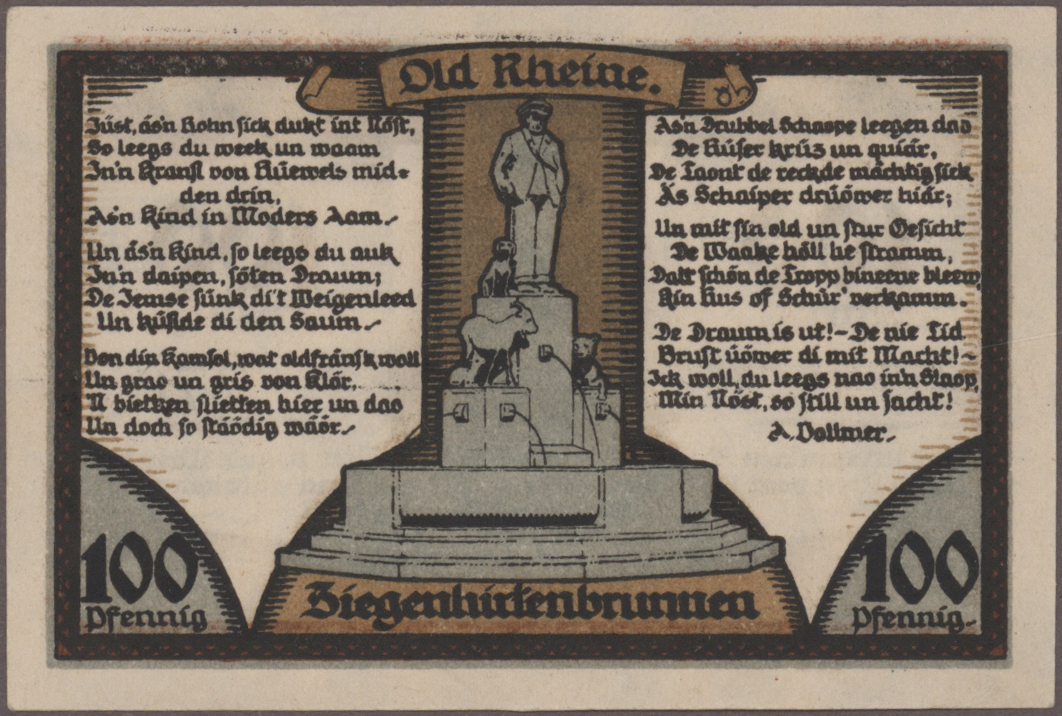 Old Rheine.
Jüst, äs'n Hohn sick dukt int Nöst,
So leegs du week un waam
In'n Kransk von Hüewels mid-
den drin,
As'n Kind in Moders Aam.
Un äs'n Kind, so leegs du auk
In'n daipen, söten Draum;
De Iemse sünk di't Weigenleed
Un küßde di den Saum.
Von din Kamsol, wat oldfränsk woll
Un grao un gris von Klör,
'N bietken flietken hier un dao
Un doch so stäödig wäör.
As'n Drubbel Schaope leegen dao
De Hüser krüz un quiär,
De Taont de reckde mächtig sick
Äs Schaiper drüöwer hiär;
Un mit sin old un stur Gesicht
De Waake höll he stramm,
Datt schön de Tropp bineene bleew,
Kin Hus of Schür' verkamm.
De Draum is ut! – De nie Tid
Brust üöwer di mit Macht! –
Ick woll, du leegs nao in'n Slaop,
Min Nöst, so still un sacht!
A. Dollmer.
100
Pfennig
Ziegenhirtenbrunnen
100
Pfennig